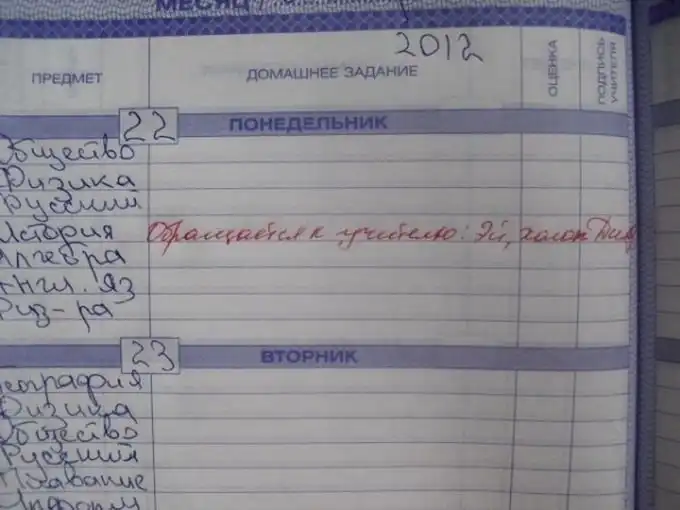 МЕСЯЦ
2012
ПРЕДМЕТ ДОМАШНЕЕ ЗАДАНИЕ ОЦЕНКА ПОДПИСЬ УЧИТЕЛЯ
22 ПОНЕДЕЛЬНИК
Общество
Физика
Русский
История Обращается к учителю: Эй, холоп
Алгебра
Англ. яз
Физ-ра
23 ВТОРНИК
География
Физика
Общество
Русский
Плавание
Информ